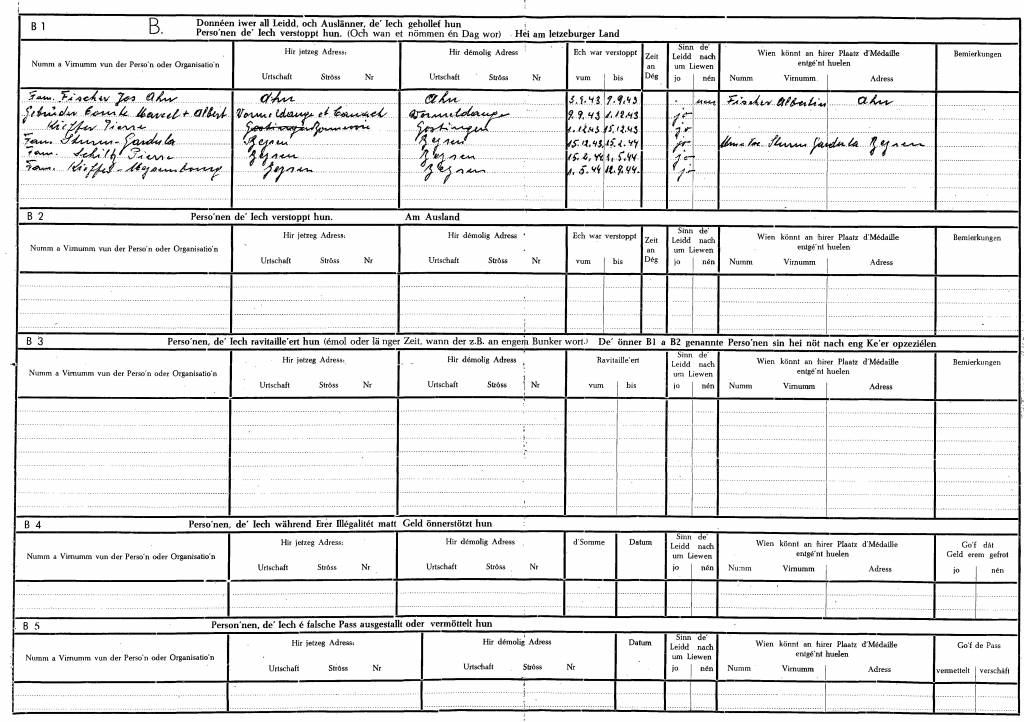 B 1 B. Donnéen iwer all Leidd, och Auslänner, de' Iech gehollef hun
Perso'nen de' Iech verstoppt hun. (Och wan et nömmen én Dag wor) Hei am letzeburger Land
Numm a Virnumm vun der Perso'n oder Organisatio'n Hir jetzeg Adress: Hir démolig Adress Ech war verstoppt Zeit an Dég Sinn de' Leidd nach um Liewen Wien könnt an hirer Plaatz d'Médaille entgé'nt huelen Bemierkungen
Urtschaft Ströss Nr Urtschaft Ströss Nr vum bis jo nén Numm Virnumm Adress
Fam. Fischer Jos Ahn Ahn Ahn 3.9.43 9.9.43 nen Fischer Albertin Ahn
Gebrüder Marcel + Albert Wormeldange et Wormeldange 9.9.43 1.12.43 jo
Kieffer Pierre Gostingen 1.12.43 15.12.43 jo
Fam. Sturm-Gardula Beyren Beyren 15.12.43 15.2.44 jo Sturm Gardula Beyren
Fam. Schiltz Pierre Beyren Beyren 15.2.44 1.5.44 jo
Fam. Kieffer-Weyembourg Beyren Beyren 1.5.44 12.9.44. jo
B 2 Perso'nen de' Iech verstoppt hun. Am Ausland
Numm a Virnumm vun der Perso'n oder Organisatio'n Hir jetzeg Adress: Hir démolig Adress Ech war verstoppt Zeit an Dég Sinn de' Leidd nach um Liewen Wien könnt an hirer Plaatz d'Médaille entgé'nt huelen Bemierkungen
Urtschaft Ströss Nr Urtschaft Ströss Nr vum bis jo nén Numm Virnumm Adress
B 3 Perso'nen, de' Iech ravitaille'ert hun (émol oder länger Zeit, wann der z.B. an engem Bunker wort.) De' önner B1 a B2 genannte Perso'nen sin hei nöt nach eng Ke'er opzeziélen
Numm a Virnumm vun der Perso'n oder Organisatio'n Hir jetzeg Adress: Hir démolig Adress Ravitaille'ert Sinn de' Leidd nach um Liewen Wien könnt an hirer Plaatz d'Médaille entgé'nt huelen Bemierkungen
Urtschaft Ströss Nr Urtschaft Ströss Nr vum bis jo nén Numm Virnumm Adress
B 4 Perso'nen, de' Iech während Erer Illégalitét matt Geld önnerstötzt hun
Numm a Virnumm vun der Perso'n oder Organisatio'n Hir jetzeg Adress: Hir démolig Adress d'Somme Datum Sinn de' Leidd nach um Liewen Wien könnt an hirer Plaatz d'Médaille entgé'nt huelen Go'f dát Geld erem gefrot
Urtschaft Ströss Nr Urtschaft Ströss Nr jo nén Numm Virnumm Adress jo nén
B 5 Person'nen, de' Iech é falsche Pass ausgestallt oder vermöttelt hun
Numm a Virnumm vun der Perso'n oder Organisatio'n Hir jetzeg Adress: Hir démolig Adress Datum Sinn de' Leidd nach um Liewen Wien könnt an hirer Plaatz d'Médaille entgé'nt huelen Go'f de Pass
Urtschaft Ströss Nr Urtschaft Ströss Nr jo nén Numm Virnumm Adress vermettelt verschäft